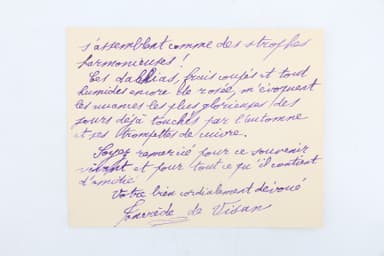 s'assemblent comme des strophes
harmonieuses !
Ces dahlias, frais coupés et tout
humides encore de rosée, m'évoquent
les nuances les plus glorieuses des
jours déjà touchés par l'automne
et ses trompettes de cuivre.
Soyez remercié pour ce souvenir
vivant et pour tout ce qu'il contient
d'amitié
Votre bien cordialement dévoué
de Visan